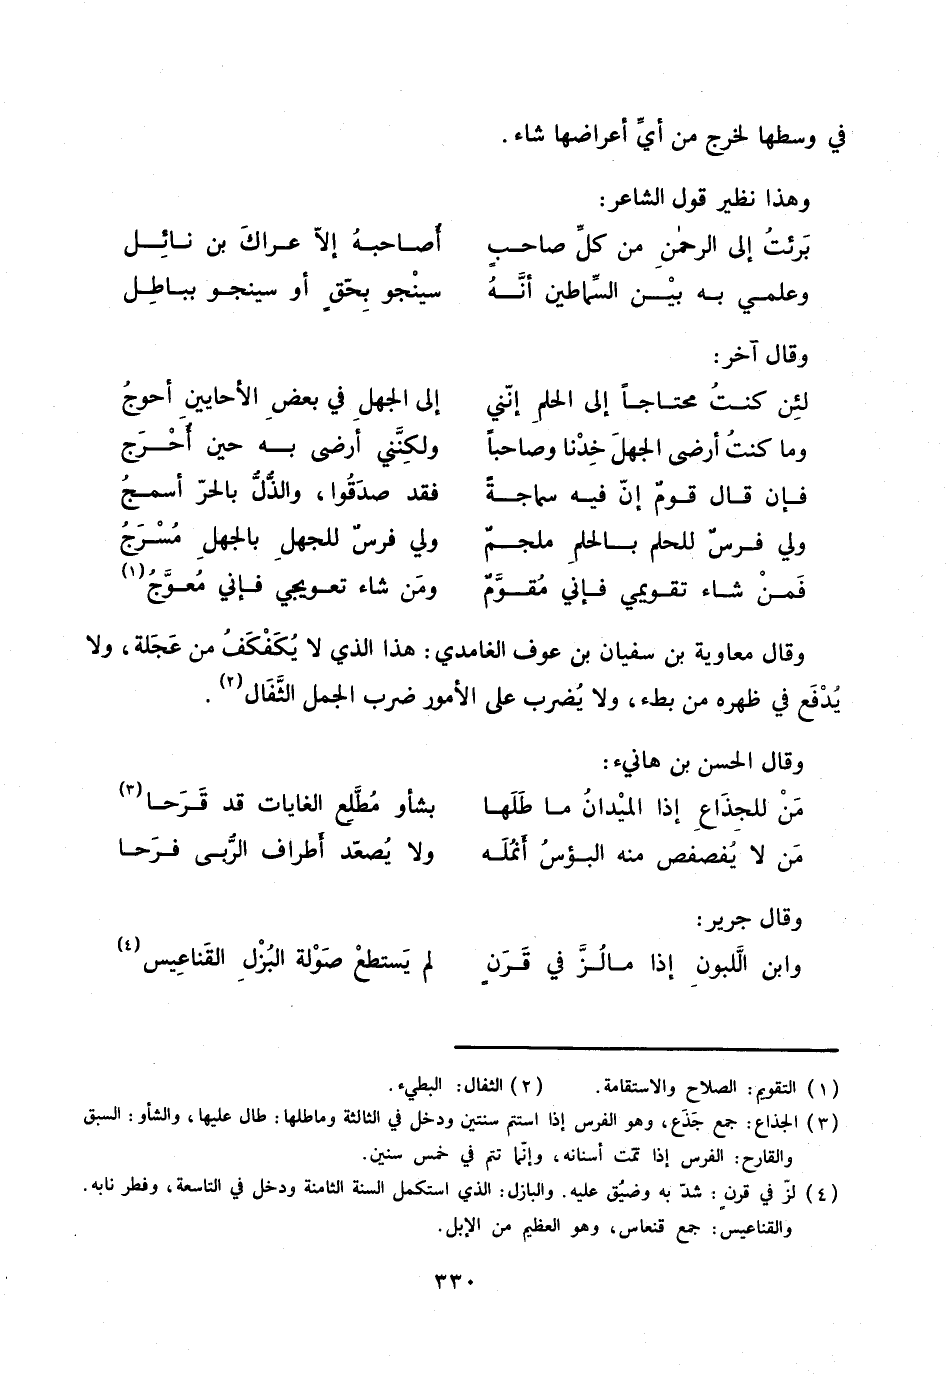 في وسطها لخرج من أيِّ أعراضها شاء .
وهذا نظير قول الشاعر:
بَرئتُ إلى الرحمٰنِ من كلِّ صاحبٍ أُصاحبهُ إلاّ عراكَ بن نائِل
وعلمي به بيْن السِّماطين أنَّهُ سينْجو بِحَقٍ أو سينجو بباطِل
وقال آخر:
لئِن كنتُ محتاجاً إلى الحلمِ إنّني إلى الجهلِ في بعضِ الأحايينِ أحوجُ
وما كنتُ أرضى الجهلَ خِدْنا وصاحباً ولكِنَّني أرضى به حين أُحْرَج
فإن قال قومٌ إنّ فيه سماجةً فقد صدَقُوا، والذُّلُّ بالحرّ أسمجُ
ولي فرسٌ للحلم بالحلمِ ملجمٌ ولي فرسٌ للجهلِ بالجهلِ مُسْرَجُ
فَمنْ شاء تقويمي فإني مُقوَّمٌ ومَن شاء تعويجي فإني مُعوَّجُ (١)
وقال معاوية بن سفيان بن عوف الغامدي: هذا الذي لا يُكَفْكَفُ من عَجَلة، ولا
يُدْفَع في ظهره من بطء، ولا يُضرب على الأمور ضرب الجمل الثَّفَال (٢) .
وقال الحسن بن هانيء:
مَنْ للجِذَاعِ إذا الميْدانُ ما طَلَها بشأو مُطَّلِع الغايات قد قَرَحا (٣)
مَن لا يُفصفص منه البؤسُ أنْمُلَه ولا يُصعّد أطراف الرُّبى فرَحا
وقال جرير:
وابن الَّلبونِ إذا مالُزَّ في قَرَنٍ لم يَستطعْ صَوْلة البُزْلِ القَناعِيس (٤)
(١) التقويم: الصلاح والاستقامة. (٢) الثفال: البطيء.
(٣) الجذاع: جمع جَذَع، وهو الفرس إذا استتم سنتين ودخل في الثالثة وماطلها: طال عليها، والشأو: السبق
والقارح: الفرس إذا تمّت أسنانه، وإنّما تتم في خمس سنين.
(٤) لزّ في قرنٍ: شدّ به وضيّق عليه. والبازل: الذي استكمل السنة الثامنة ودخل في التاسعة، وفطر نابه.
والقناعيس: جمع قنعاس، وهو العظيم من الإبل.
٣٣٠